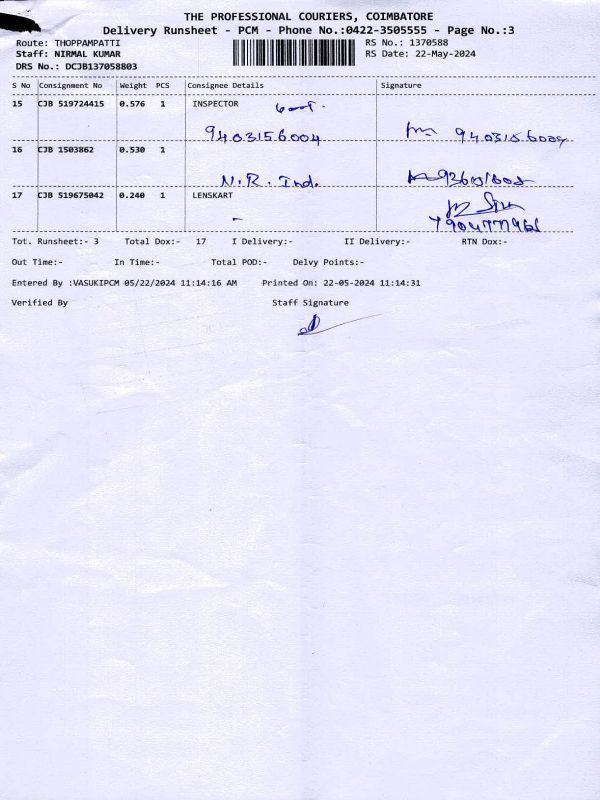 THE PROFESSIONAL COURIERS, COIMBATORE
Delivery Runsheet - PCM - Phone No.:0422-3505555 - Page No.:3
Route: THOPPAMPATTI RS No.: 1370588
Staff: NIRMAL KUMAR RS Date: 22-May-2024
DRS No.: DCJB137058803
S No Consignment No Weight PCS Consignee Details Signature
15 CJB 519724415 0.576 1 INSPECTOR
9403156004 9403156004
16 CJB 1503862 0.530 1
N.R. Ind.
17 CJB 519675042 0.240 1 LENSKART
-
Tot. Runsheet:- 3 Total Dox:- 17 I Delivery:- II Delivery:- RTN Dox:-
Out Time:- In Time:- Total POD:- Delvy Points:-
Entered By :VASUKIPCM 05/22/2024 11:14:16 AM Printed On: 22-05-2024 11:14:31
Verified By Staff Signature